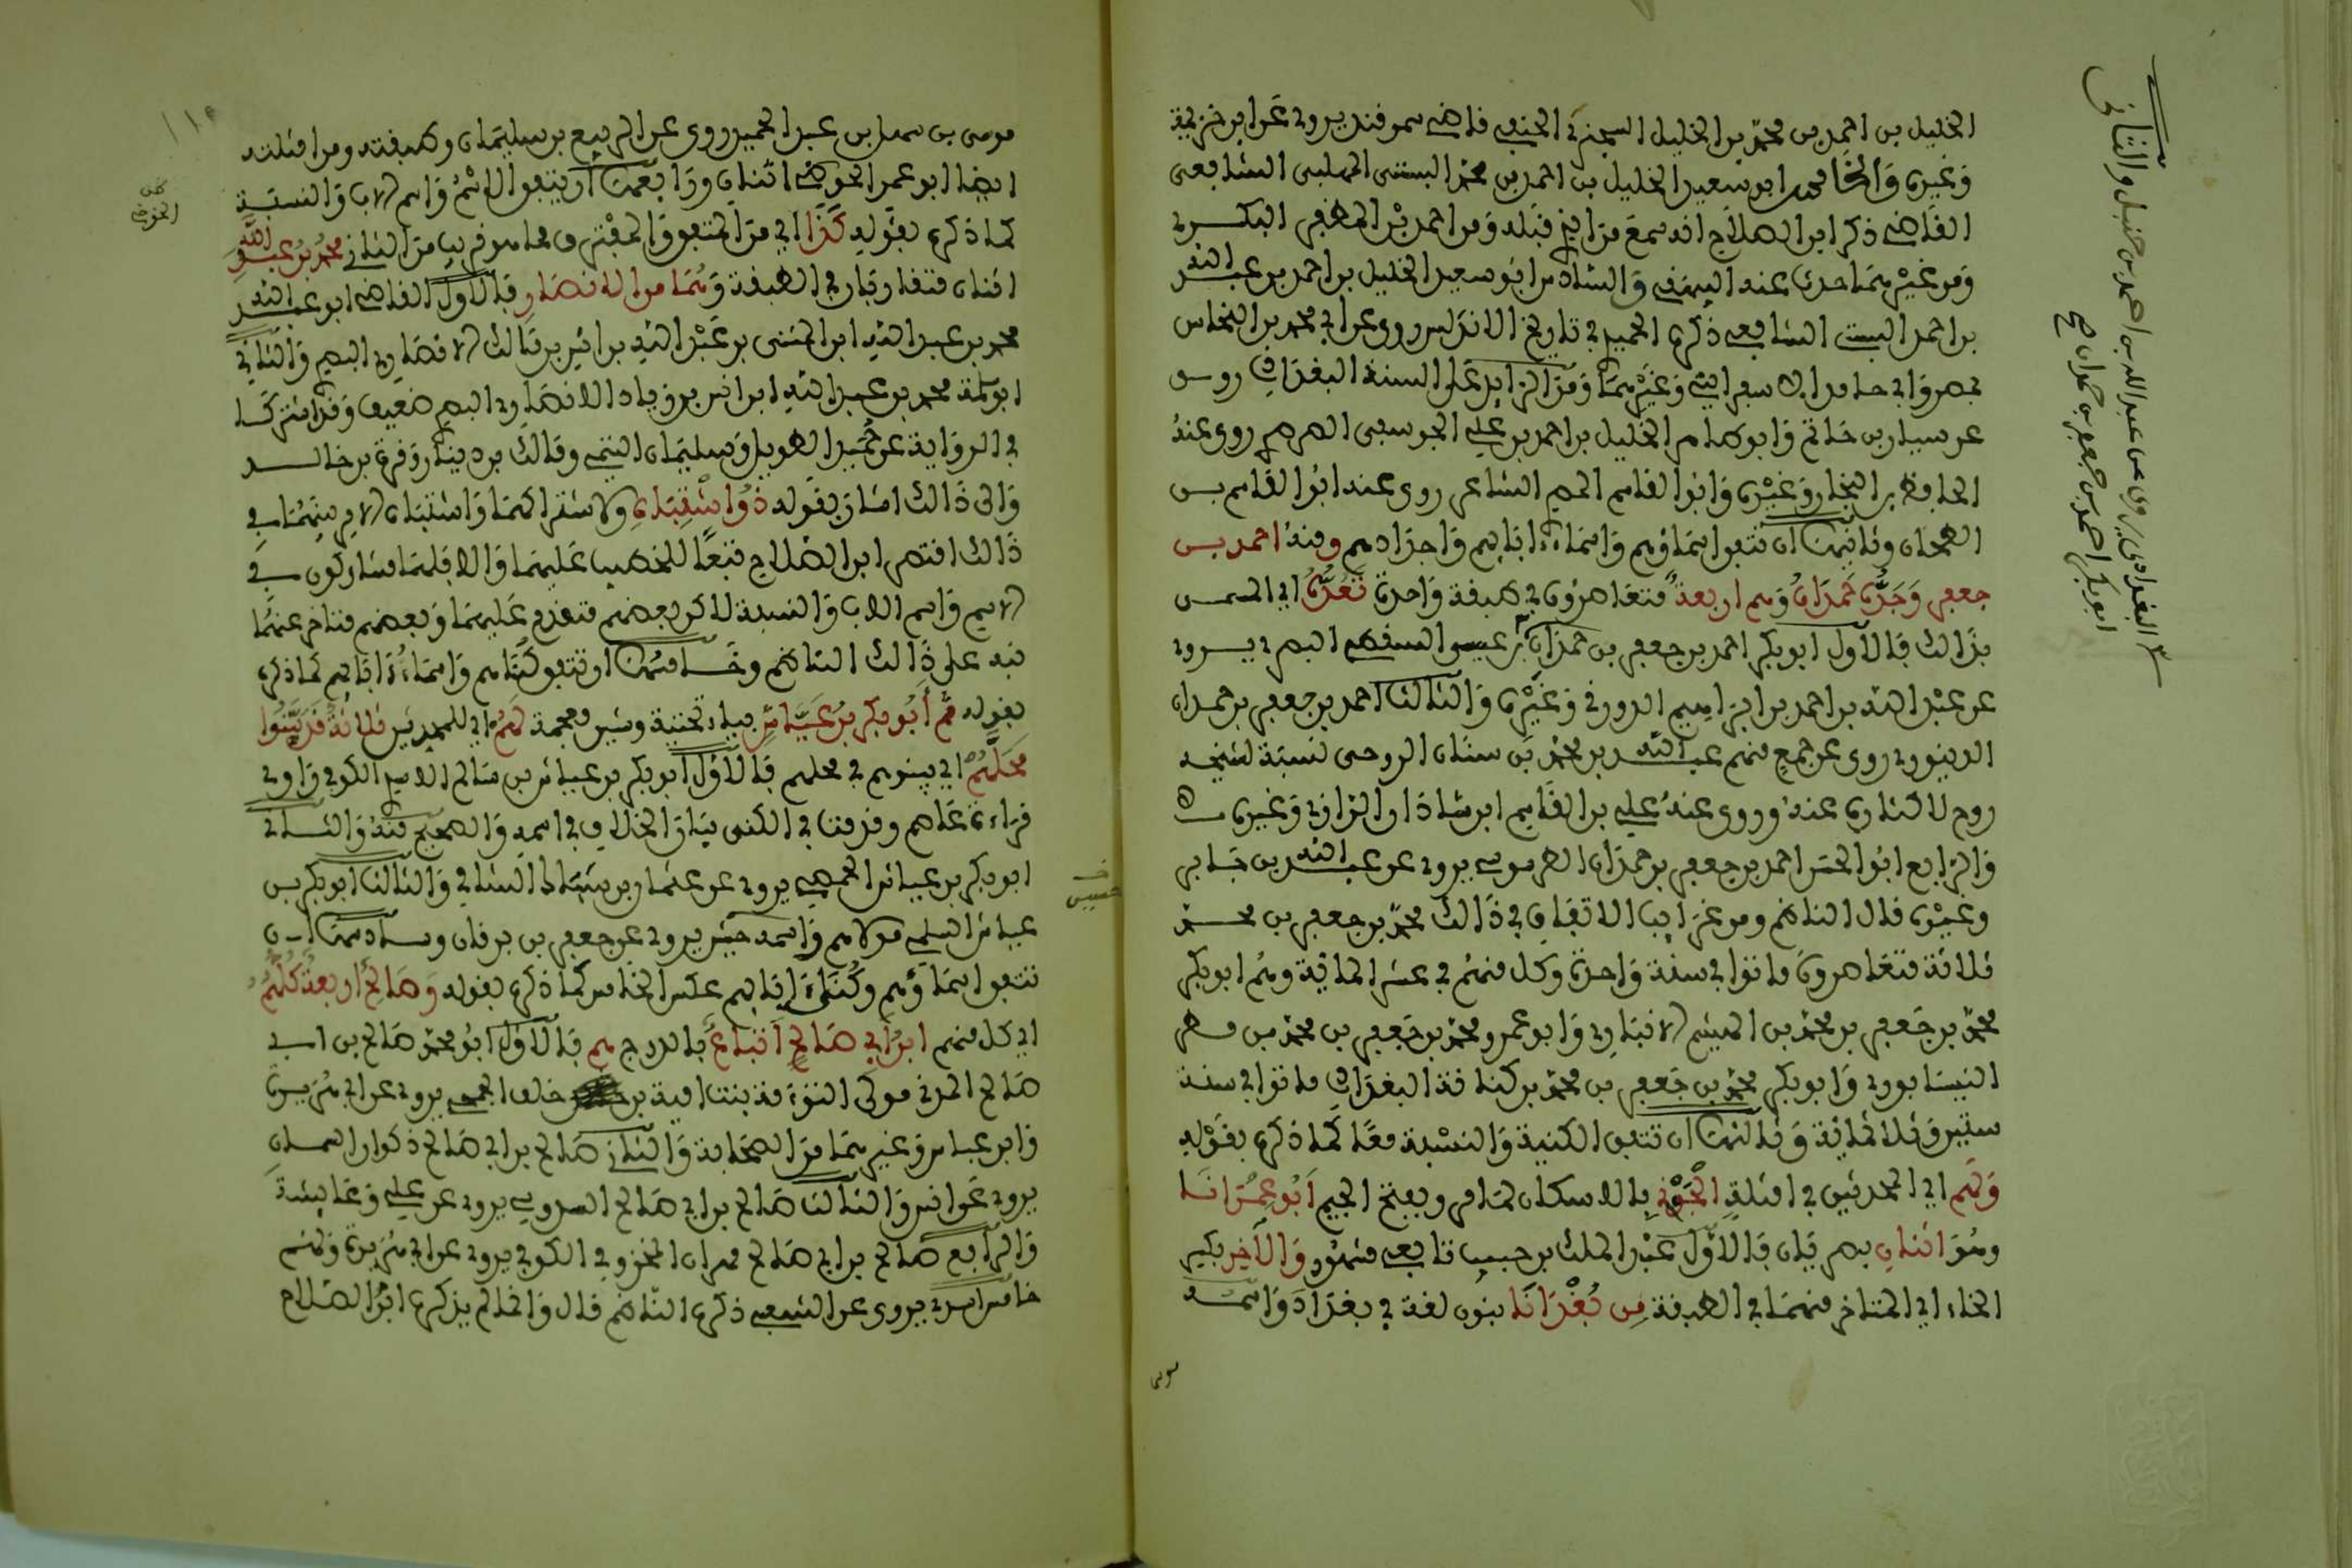 الخليل بن احمد بن محمد بن الخليل السجزي الحنفي قاضي سمرقند يروي عن ابن خزيمة
وغيره والخامس ابو سعيد الخليل بن احمد بن محمد البستي المهلبي الشافعي
القاضي ذكر ابن الصلاح انه سمع من الذي قبله ومن احمد بن المظفر البكري
ومن غيرهما حدث عنه البيهقي والسادس ابو سعيد الخليل بن احمد بن عبد الله
بن احمد البستي الشافعي ذكره الحميدي في تاريخ الاندلس روى عن ابي محمد بن النحاس
بمصر وابي حامد الاسفرايني وغيرهما ومن الزايد على الستة البغدادي روى
عن سيار بن حاتم وابو طاهر الخليل بن احمد بن علي الجوسقي الصرصري روى عنه
الحافظ بن النجار وغيره وابو القاسم المصري الشاعر روى عنه ابو القاسم بن
الطحان وثانيها ان تتفق اسماؤهم واسماء ابايهم واجدادهم ومنه احمد بن
جعفر وجده حمدان وهم اربعة متعاصرون في طبقة واحدة تعده اي المسمى
بذالك فالاول ابو بكر احمد بن جعفر بن حمدان بن عيسى السقطي البصري يروي
عن عبد الله بن احمد بن ابراهيم الدورقي وغيره والثالث احمد بن جعفر بن حمدان
الدينوري روى عن جمع منهم عبد الله بن محمد بن سنان الروحي نسبة لشيخه
روح لاكثاره عنه وروى عنه علي بن القاسم ابن شاذان الرازي وغيره
والرابع ابو الحسن احمد بن جعفر بن حمدان الطرسوسي يروي عن عبد الله بن جابر
وغيره قال الناظم ومن غرايب الاتفاق في ذالك محمد بن جعفر بن محمد
ثلاثة متعاصرون ماتوا في سنة واحدة وكل منهم في عشر الماية وهم ابو بكر
محمد بن جعفر بن محمد بن الهيثم الانباري وابو عمرو محمد بن جعفر بن محمد بن مطر
النيسابوري وابو بكر محمد بن جعفر بن محمد بن كنانة البغدادي ماتوا في سنة
ستين وثلاثماية وثالثها ان تتفق الكنية والنسبة معا كما ذكره بقوله
ولهم اي المحدثين في امثلة الجوني بالاسكان لما مر وبفتح الجيم ابو عمرانا
وهو اثنان بصريان فالاول عبد الملك بن حبيب تابعي مشهور والآخر بكسر
الخاء اي المتاخر منهما في الطبقة من بغدانا بنون لغة في بغداد واسمه
موسى
٣ البغدادي يروي عن عبد الله بن احمد بن حنبل والثاني
ابو بكر احمد بن جعفر بن حمدان صح
موسى بن سهل بن عبد الحميد روى عن الربيع بن سليمان وطبقته ومن امثلته
ايضا ابو عمر الحوضي اثنان ورابعها ان يتفق الاسم واسم الاب والنسبة
كما ذكره بقوله كذا اي من المتفق والمفترق مما هو قريب من الثاني محمد بن عبد الله
اثنان متقاربان في الطبقة وهما من الانصار فالاول القاضي ابو عبد الله
محمد بن عبد الله ابن المثنى بن عبد الله بن انس بن مالك الانصاري البصري والثاني
ابو سلمة محمد بن عبد الله ابن انس بن زياد الانصاري البصري ضعيف وقد اشتركا
في الرواية عن حميد الطويل وسليمان التيمي ومالك بن دينار وقرة بن خالد
والى ذالك اشار بقوله ذو اشتباه ولاشتراكهما واشتباه الامر بينهما في
ذالك اقتصر ابن الصلاح تبعا للخطيب عليهما والا فلهما مشاركون في
الاسم واسم الاب والنسبة لاكن بعضهم متقدم عليهما وبعضهم متاخر عنهما
نبه على ذالك الناظم وخامسها ان تتفق كناهم واسماء ابايهم كما ذكره
بقوله ثم ابو بكر بن عياش بياء تحتية وشين معجمة لهم اي للمحدثين ثلاثة قد بينوا
محلهم اي بينوهم في محلهم فالاول ابو بكر بن عياش بن سالم الاسدي الكوفي راوي
قراءة عاصم وقد مر في الكنى بيان الخلاف في اسمه والصحيح منه والثاني
ابو بكر بن عياش الحمصي يروي عن عثمان بن شباك الشامي والثالث ابو بكر بن
عياش السلمي مولاهم واسمه حسين يروي عن جعفر بن برقان وسادسها ان
تتفق اسماؤهم وكنى ابايهم عكس الخامس كما ذكره بقوله وصالح اربعة كلهم
اي كل منهم ابن ابي صالح اتباع بالدرج هم فالاول ابو محمد صالح بن ابي
صالح المدني مولى التوءمة بنت امية بن خلف الجمحي يروي عن ابي هريرة
وابن عباس وغيرهما من الصحابة والثاني صالح بن ابي صالح ذكوان السمان
يروي عن انس والثالث صالح بن ابي صالح السدوسي يروي عن علي وعايشة
والرابع صالح بن ابي صالح مهران المخزومي الكوفي يروي عن ابي هريرة ولهم
خامس اسدي يروي عن الشعبي ذكره الناظم قال وانما لم يذكره ابن الصلاح
حسين